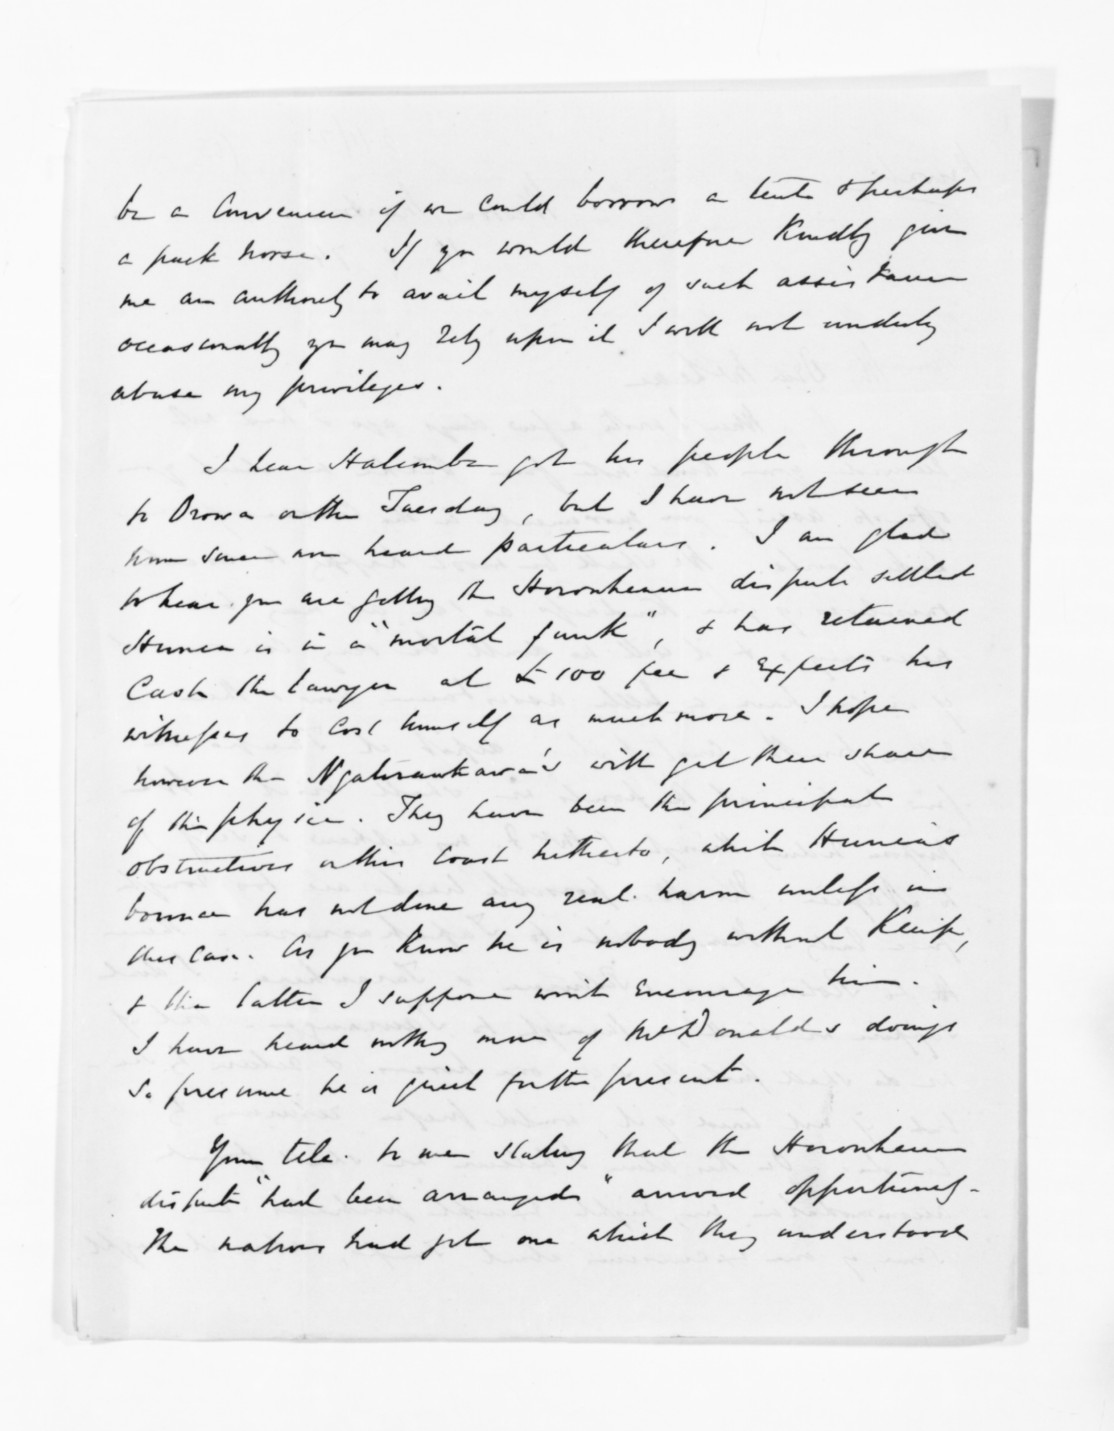 be a convenience if we could borrow a tent & perhaps
a pack horse. If you would therefore kindly give
me an authority to avail myself of such assistance
occasionally you may rely upon it I will not unduly
abuse my privileges.
I hear Halcombe got his people through
to Oroua on the Tuesday, but I have not seen
him since nor heard particulars. I am glad
to hear you are getting the Horowhenua dispute settled
Hunia is in a "mortal funk", & has retained
Cash the lawyer at £100 fee & expects his
witnesses to cost himself as much more. I hope
however the Ngatiraukawa's will get their share
of the physic. They have been the principal
obstructives on this Coast hitherto, while Hunia's
bounce has not done any real harm unless in
this case. As you know he is nobody without Keipa,
& the latter I suppose won't encourage him.
I have heard nothing more of McDonald's doings
so presume he is quiet for the present.
Your tele. to me stating that the Horowhenua
dispute "had been arranged" arrived opportunely.
The natives had got one which they understood